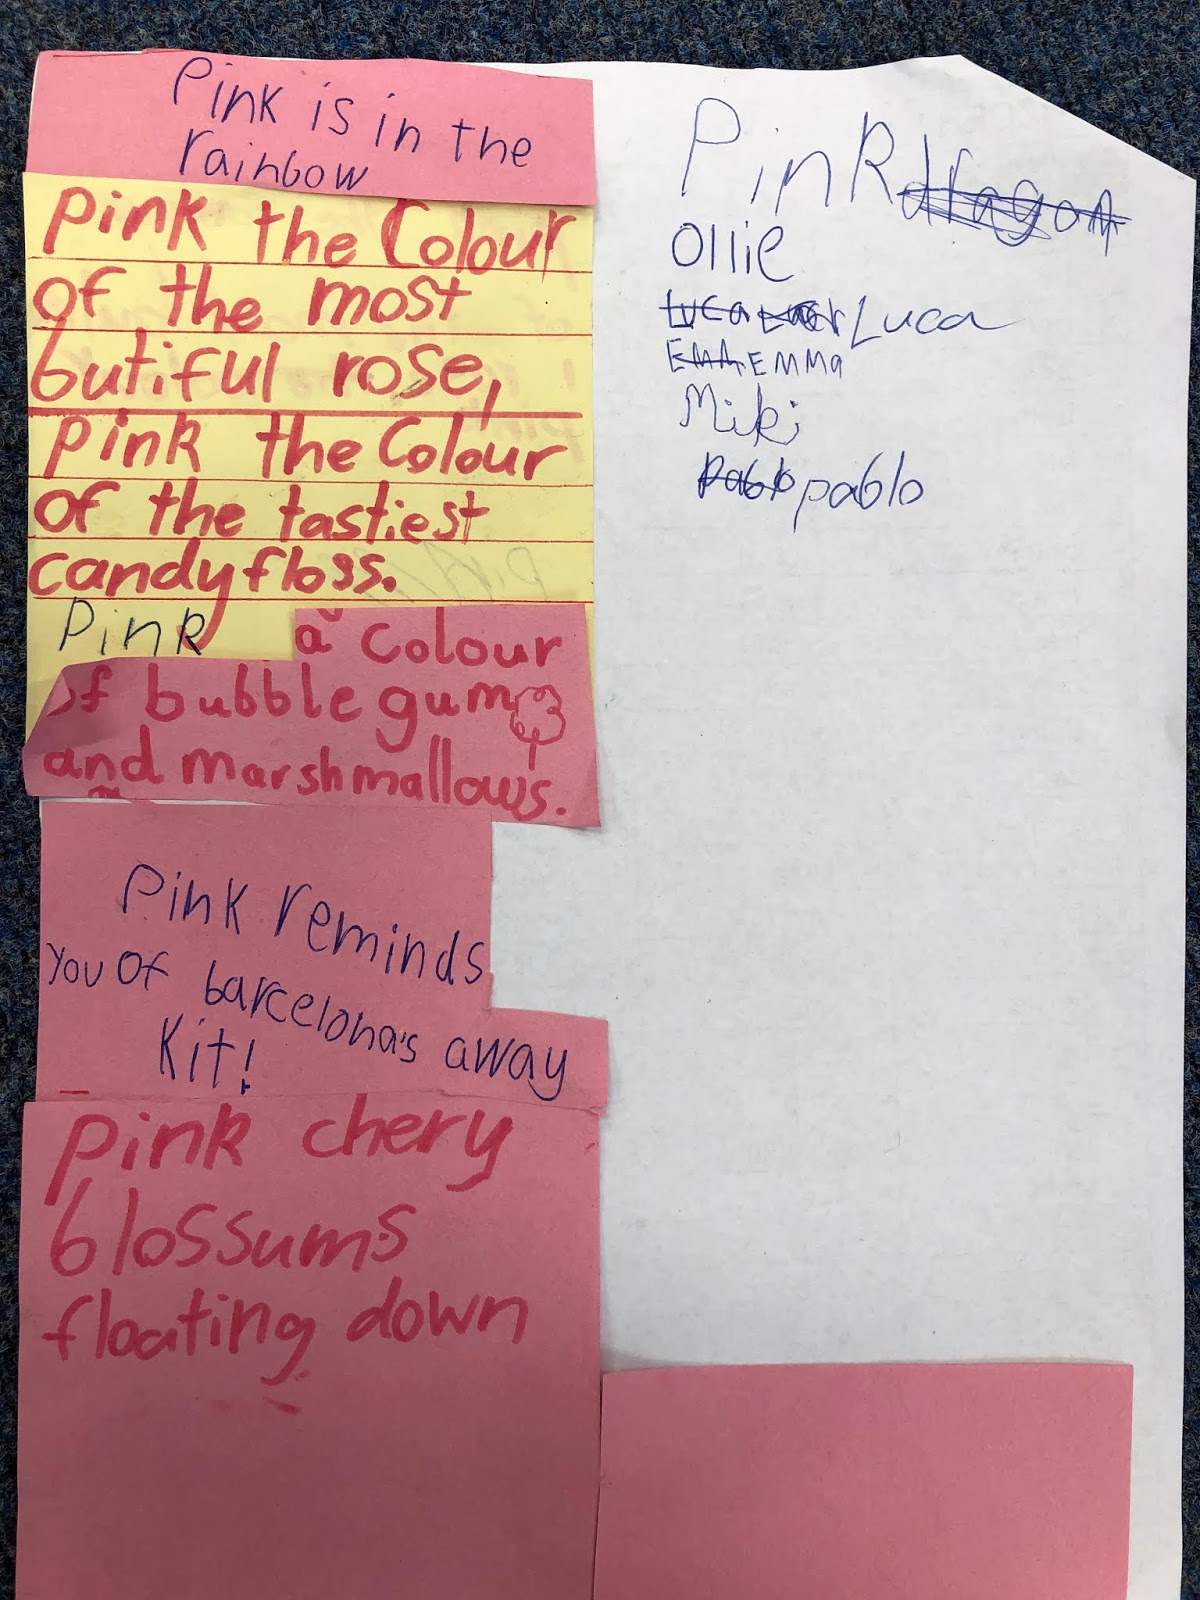 Pink is in the
rainbow
Pink the Colour
of the most
butiful rose,
Pink the Colour
of the tastiest
candyfloss.
Pink a colour
of bubble gum
and marshmallows.
Pink reminds
you of barcelona's away
Kit!
Pink chery
blossums
floating down
Pink dragon
Ollie
Luca Luca
Emma
Miki
Pablo pablo